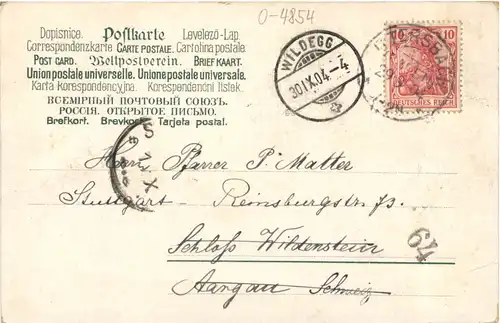 0-4854
Dopisnice. Postkarte Levelező-Lap.
Correspondenzkarte CARTE POSTALE. Cartolina postale
POST CARD. Weltpostverein. BRIEFKAART.
Union postale universelle. Unione postale universale.
Karta Korespondencyjna. Korespondenčni listek.
ВСЕМІРНЫЙ ПОЧТОВЫЙ СОЮЗЪ.
РОССІЯ. ОТКРЫТОЕ ПИСЬМО.
Brefkort. Brevkort. Tarjeta postal.
WILDEGG
30.IX.04.-4
10 10
DEUTSCHES REICH
Herrn Pfarrer P. Matter
Stuttgart - Reinsburgstr.
Schloss Wildenstein
Aargau Schweiz
64